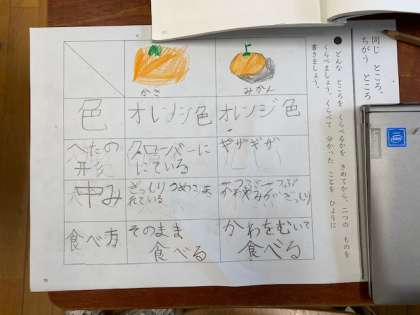 同じ ところ、
ちがう ところ
● どんな ところを くらべるかを きめてから、二つの ものを
くらべましょう。くらべて 分かった ことを ひょうに
書きましょう。
かき
みかん
色
オレンジ色
オレンジ色
へたの
形
クローバーに
にている
ギザギザ
中み
ぎっしり
食べ方
そのまま
食べる
かわをむいて
食べる